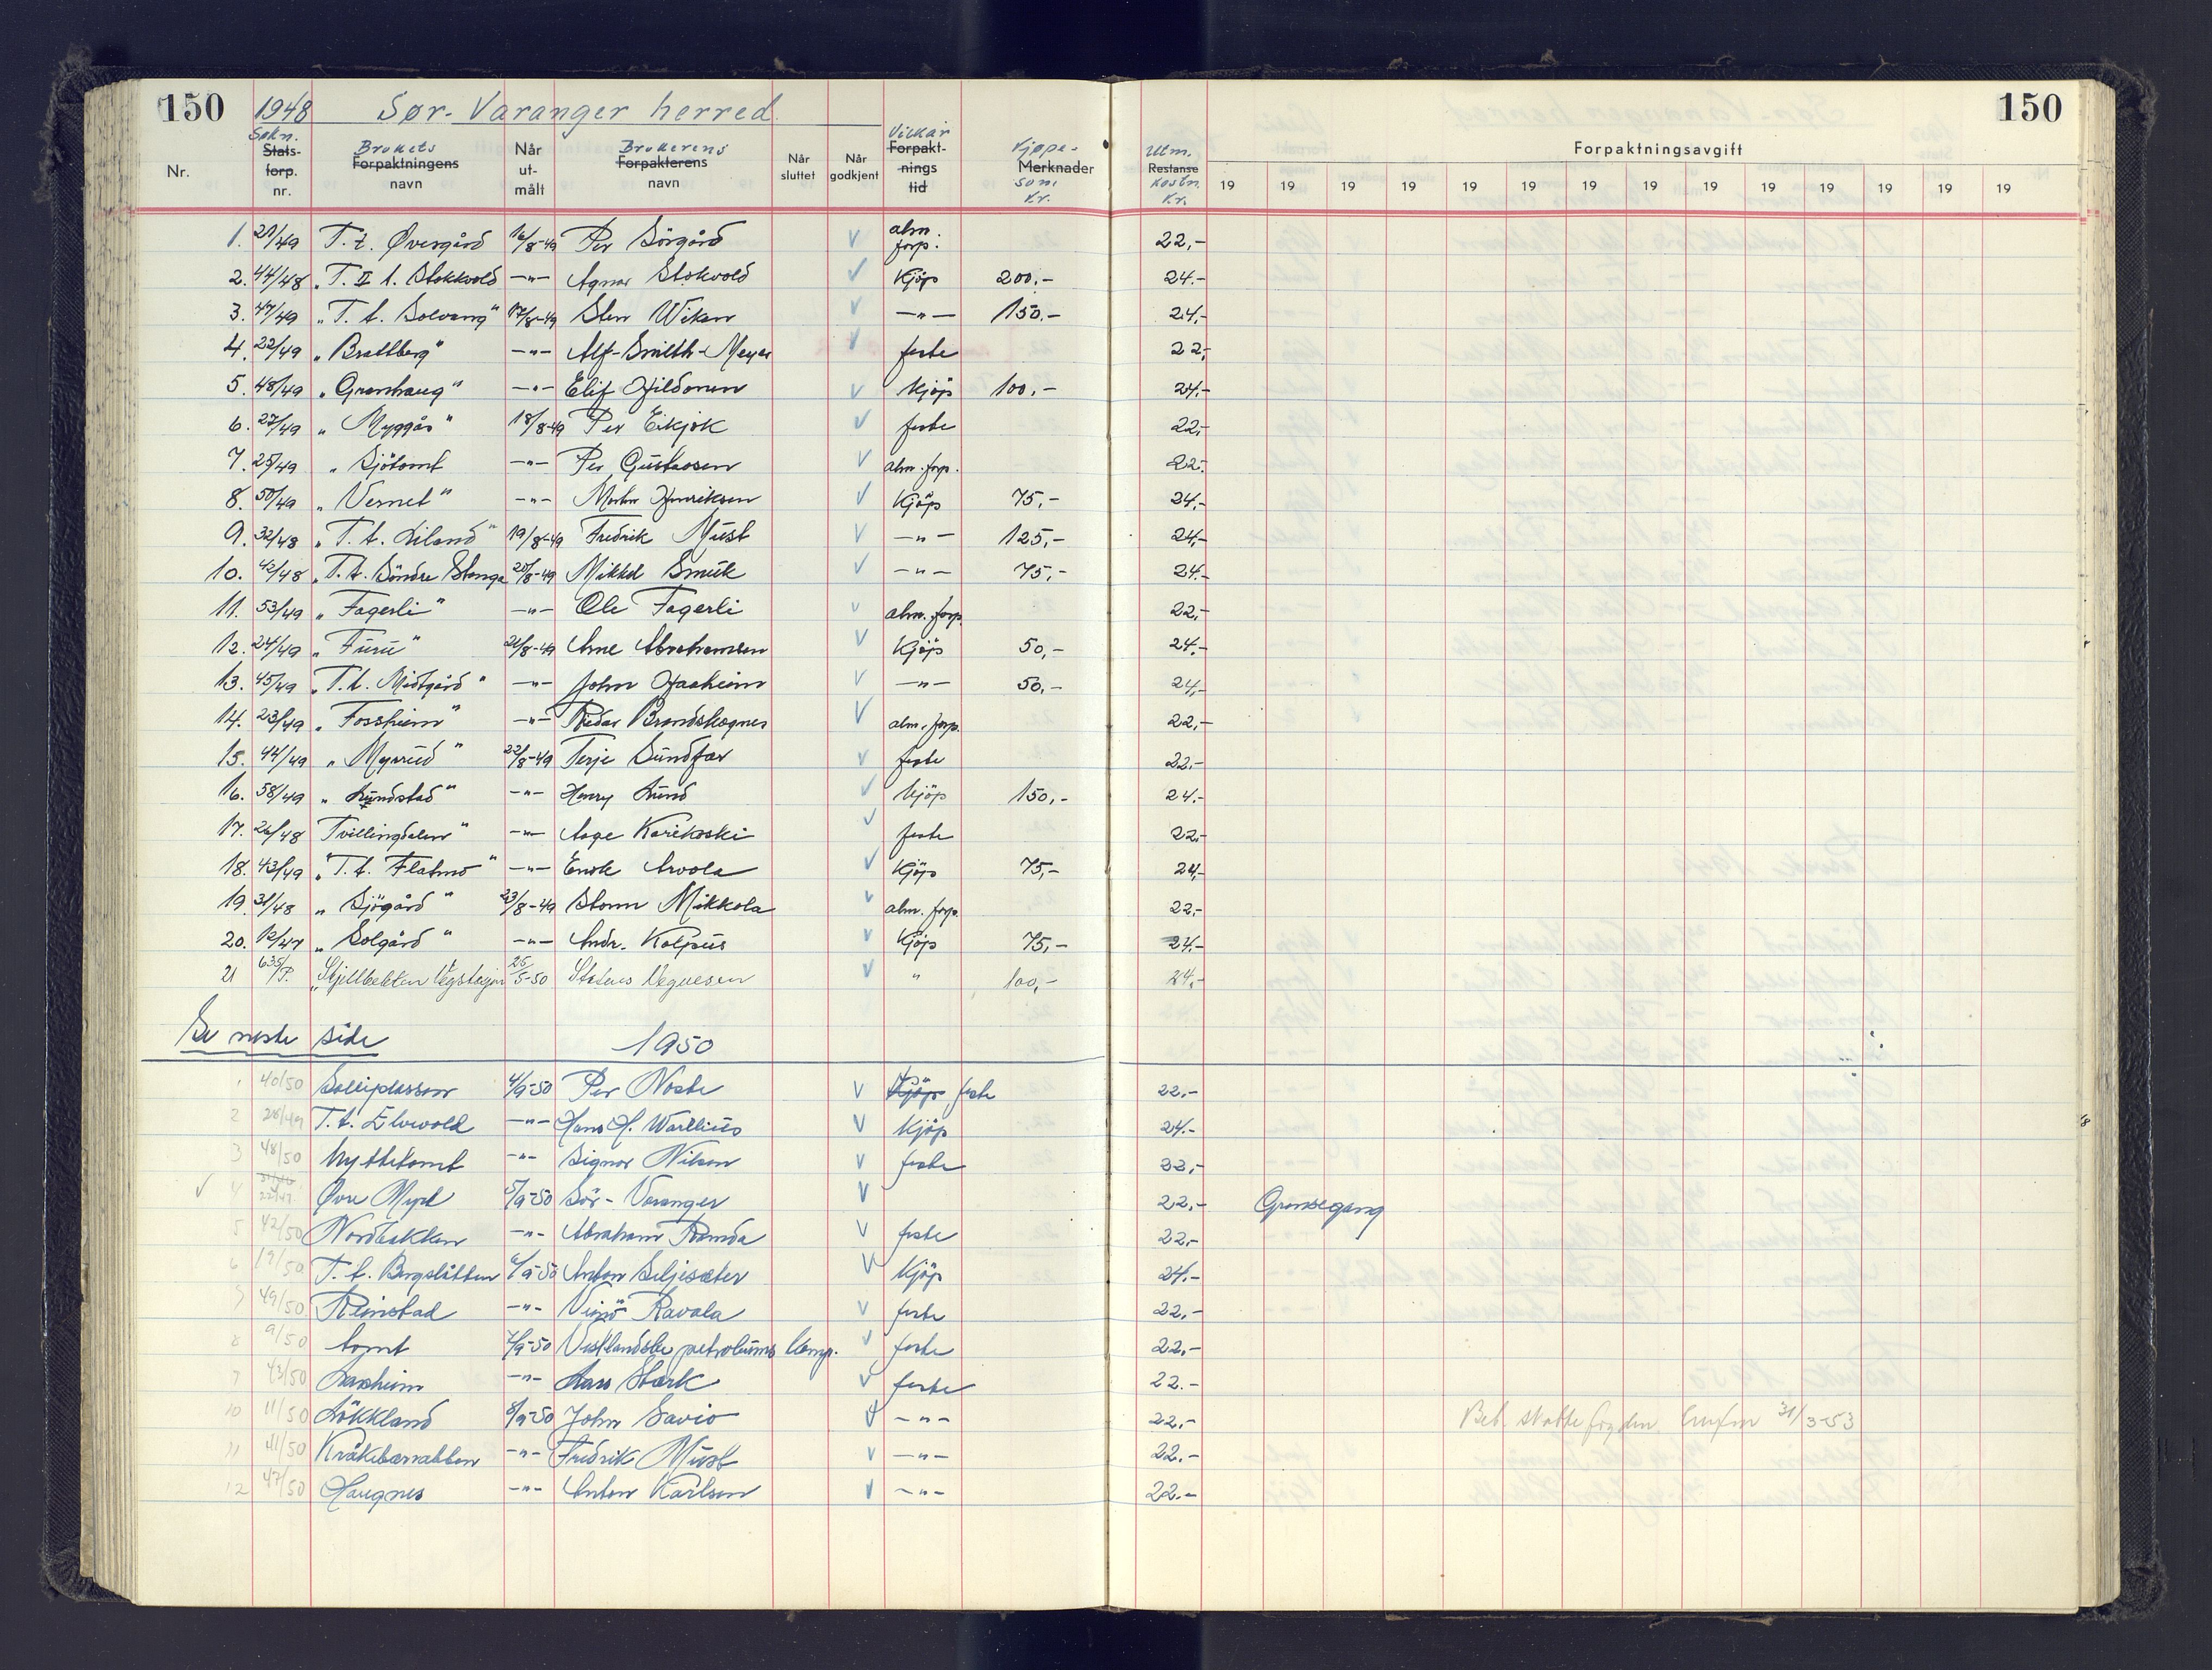 150 1948 Sør-Varanger herred. 150
Nr. Søkn. Stats- forp. nr. Brukets Forpaktningens navn Når ut- målt Brukerens Forpakterens navn Når sluttet Når godkjent Vilkår Forpakt- nings tid Kjøpe- Merknader som Kr. Utm. Restanse kostn. Kr. Forpaktningsavgift
19 19 19 19 19 19 19 19 19 19 19 19 19 19
1. 21/49 T.t. Øvergård 16/8-49 Per Sörgård v alm. forp. 22,-
2. 44/48 „T. II t. Stokkvold -„- Agnar Stokvold v Kjöp 200,- 24.-
3. 47/49 „T. t. Solvang" 17/8-49 Sten Wikan v -„- 150.- 24,-
4. 22/49 „Brattberg" -„- Alf Smith-Meyer v feste 22,-
5. 48/49 „Granhaug" -„- Elif Hildonen v Kjöp 100,- 24.-
6. 27/49 „Myggås" 18/8-49 Per Eikjok v feste 22,-
7. 25/49 „Sjötomt -„- Per Gustavsen v alm. forp. 22.-
8. 50/49 „Vernet" -„- Martin Henriksen v Kjöp 75,- 24,-
9. 32/48 „T. t. Liland" 19/8-49 Fredrik Must v -„- 125,- 24,-
10. 42/48 „T.t. Söndre Stenga 20/8-49 Mikkel Smuk v -„- 75,- 24.-
11. 53/49 „Fagerli" -„- Ole Fagerli v alm. forp. 22,-
12. 24/49 „Furu" 21/8-49 Arne Abrahamsen v Kjöp 50,- 24.-
13. 45/49 „T.t. Midtgård" -„- John Haaheim v -„- 50,- 24,-
14. 23/49 „Fossheim" -„- Reidar Brandskognes v alm. forp. 22,-
15. 44/49 „Myrud" 22/8-49 Terje Sundfær v feste 22.-
16. 58/49 „Lundstad" -„- Henry Lund v Kjöp 150,- 24.-
17. 26/48 Tvillingdalen" -„- Aage Karikoski v feste 22.-
18. 43/49 „T.t. Flatmo" -„- Enok Arvola v Kjöp 75,- 24,-
19. 31/48 „Sjögård" 23/8-49 Storm Mikkola v alm. forp. 22,-
20. 12/47 „Solgård" -„- Andr. Kolpus v Kjöp 75,- 24,-
21 635/P. „Skjellbekken Vegstasjon 25/5-50 Statens Vegvesen v " 100,- 24,-
Se neste side 1950
1 40/50 Solliplassen 4/9-50 Per Noste v Kjöp feste 22,-
2 28/49 T.t. Elvevold -„- Hans H. Wartiius v Kjöp 24.-
3 48/50 Hyttetomt -„- Signar Nilsen v feste 22,-
v 4 22/47. Øvre Myrl 5/9-50 Sör-Varanger v 22,- Grensegang
5 42/50 Nordbakken -„- Abraham Randa v feste 22,-
6 19/50 T. t. Bergslåtten 6/9-50 Anton Seljesæter v Kjöp 24.-
7 49/50. Reinstad -„- Veinö Ravala v feste 22,-
8 9/50 Tomt 7/9-50 Vestlandske petroleums Komp. v feste 22,-
9 43/50 Laxheim -„- Lars Stærk v feste 22.-
10 11/50 Lökkland 8/9-50 John Savio v -„- 22,- Bet. skattefogden 31/3-53
11 41/50 Kråkebærrabben -„- Fredrik Must v -„- 22,-
12 47/50 Haugnes -„- Anton Karlsen v -„- 22.-